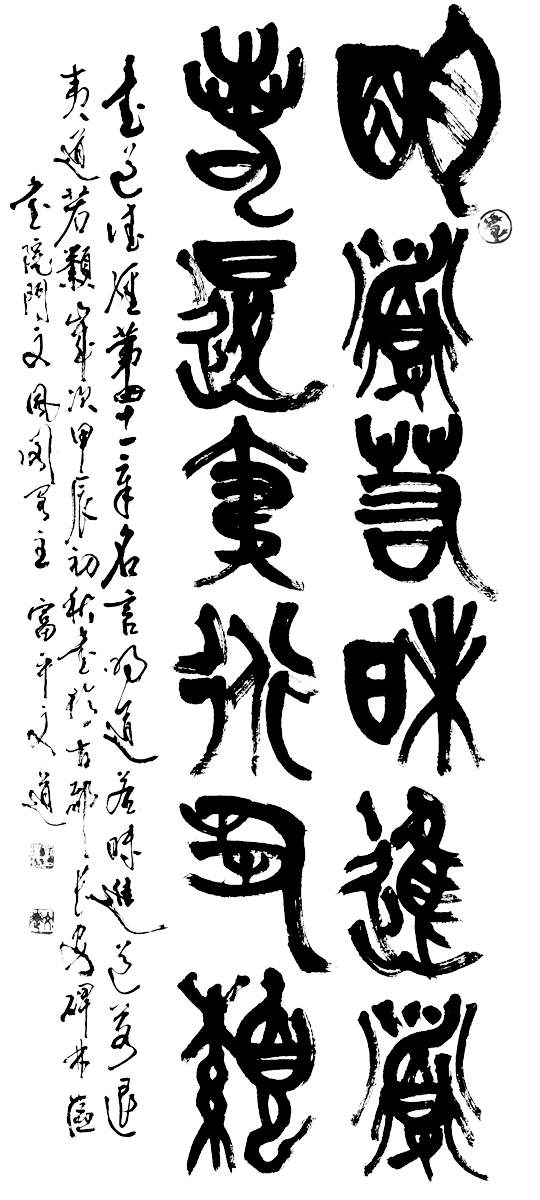 明道若昧進道
若退夷道若纇
書道德經第四十一章名言明道若昧進道若退
夷道若纇歲次甲辰初秋書於古都長安碑林區
書院門文風閣主富平文道